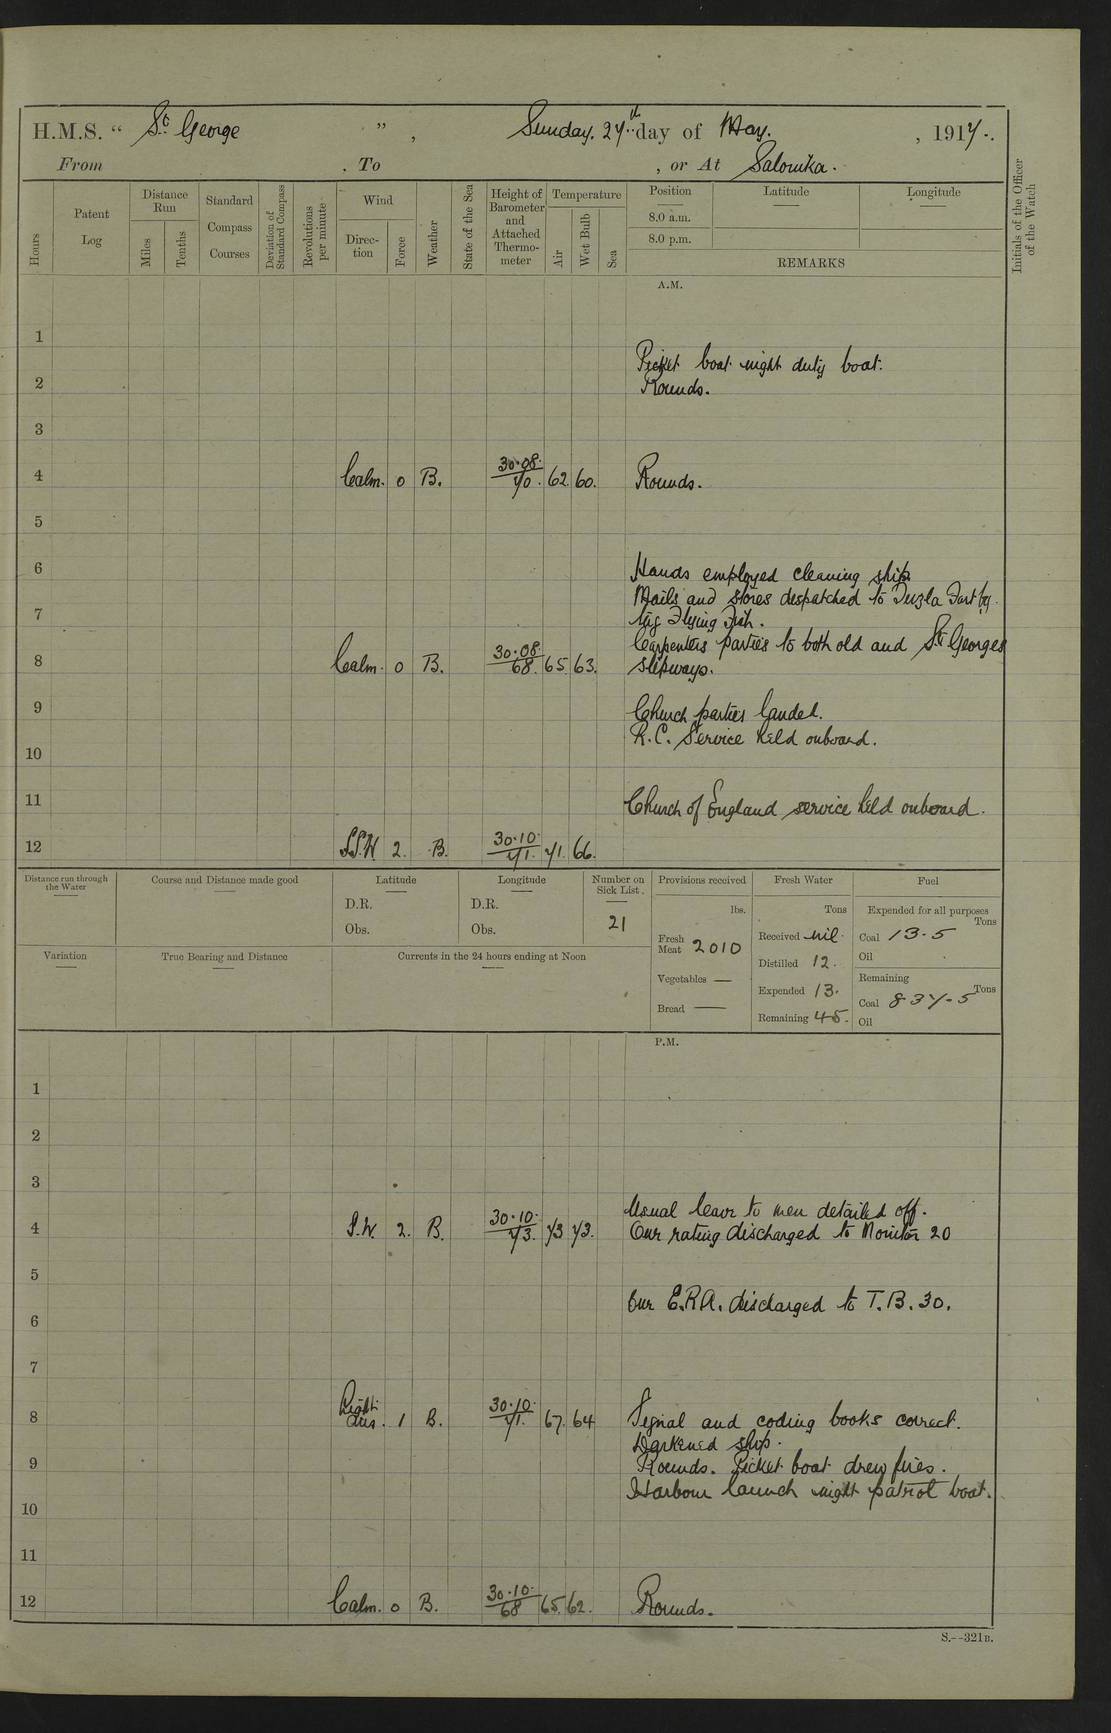 H.M.S. “ St. George ” , Sunday. 27th day of May. , 1917.
From . To , or At Salonika.
Hours Patent Log Distance Run Miles Tenths Standard Compass Courses Deviation of Standard Compass Revolutions per minute Wind Direc-tion Force Weather State of the Sea Height of Barometer and Attached Thermo-meter Temperature Air Wet Bulb Sea Position Latitude Longitude Initials of the Officer of the Watch
8.0 a.m.
8.0 p.m.
REMARKS
A.M.
1
Picket boat night duty boat.
2 Rounds.
3
4 Calm. 0 B. 30.08. 70. 62. 60. Rounds.
5
6 Hands employed cleaning ship.
Mails and stores despatched to Tuzla Fort by
7 tug Flying Fish.
Carpenters parties to both old and St Georges
8 Calm. 0 B. 30.08. 68. 65. 63. slipways.
9 Church parties landed.
R.C. Service held onboard.
10
11 Church of England service held onboard.
12 S.S.W. 2. B. 30.10. 71. 71. 66.
Distance run through the Water Course and Distance made good Latitude Longitude Number on Sick List. Provisions received Fresh Water Fuel
D.R. D.R. 21 lbs. Tons Expended for all purposes Tons
Obs. Obs. Fresh Meat 2010 Received nil. Coal 13.5
Variation True Bearing and Distance Currents in the 24 hours ending at Noon Distilled 12. Oil
Vegetables — Expended 13. Remaining Tons
Coal 837.5
Bread — Remaining 45. Oil
P.M.
1
2
3
Usual leave to men detailed off.
4 S.W. 2. B. 30.10. 73. 73 73. One rating discharged to Monitor 20
5
One E.R.A. discharged to T.B. 30.
6
7
8 Light airs. 1 B. 30.10. 71. 67. 64 Signal and coding books correct.
Darkened ship.
9 Rounds. Picket boat drew fires.
Harbour launch night patrol boat.
10
11
12 Calm. 0 B. 30.10. 68 65. 62. Rounds.
S.--321B.